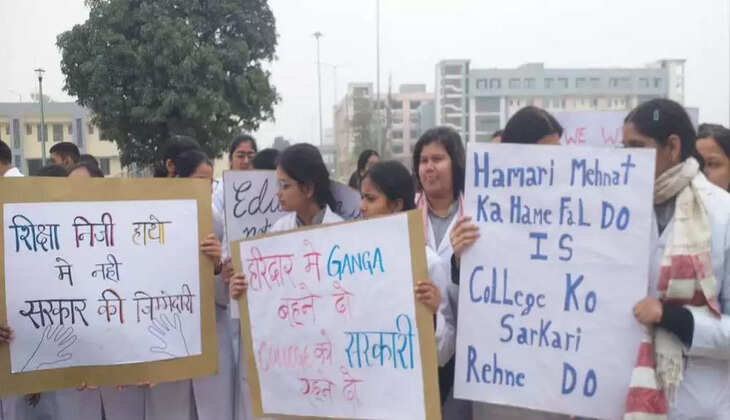 शिक्षा निजी हाथो
मे नही
सरकार की जिम्मेदारी
हरिद्वार मे GANGA
बहने दो
COLLEGE को सरकारी
रहने दो
Hamari Mehnat
Ka Hame FaL DO
IS
CoLLege Ko
Sarkari
Rehne DO
WE